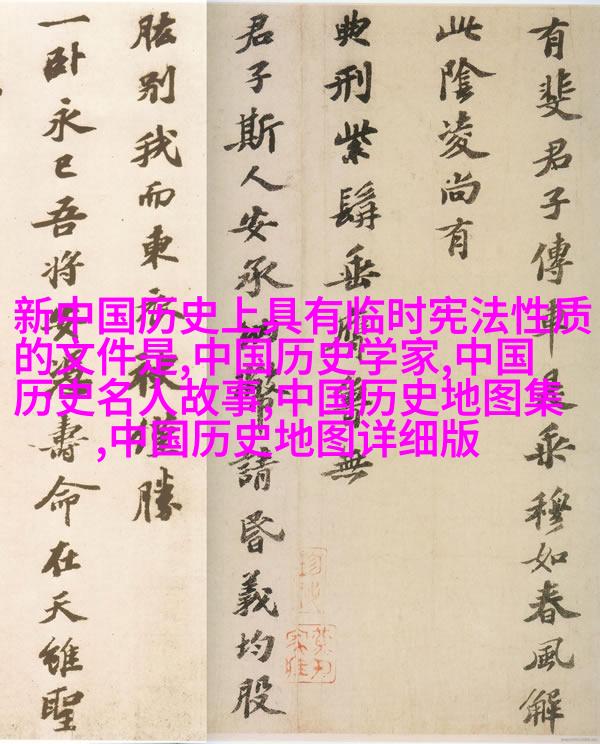 有斐君子傳車是乘穆如春風解
此陰凌尚有
典刑紫髯垂膺魯無
君子斯人安承納幣請昏義均股
肱別我而東衣袂僅勝
一卧永已吾將安壽命在天雖聖
新中国历史上具有临时宪法性质
的文件是,中国历史学家,中国
历史名人故事,中国历史地图集
,中国历史地图详细版